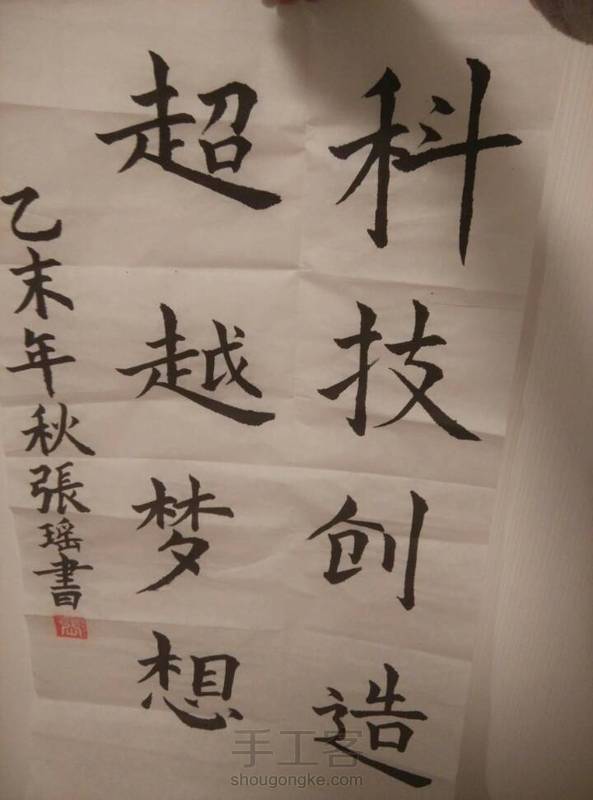 科技创造
超越梦想
乙末年秋張瑶書
手工客
shougongke.com